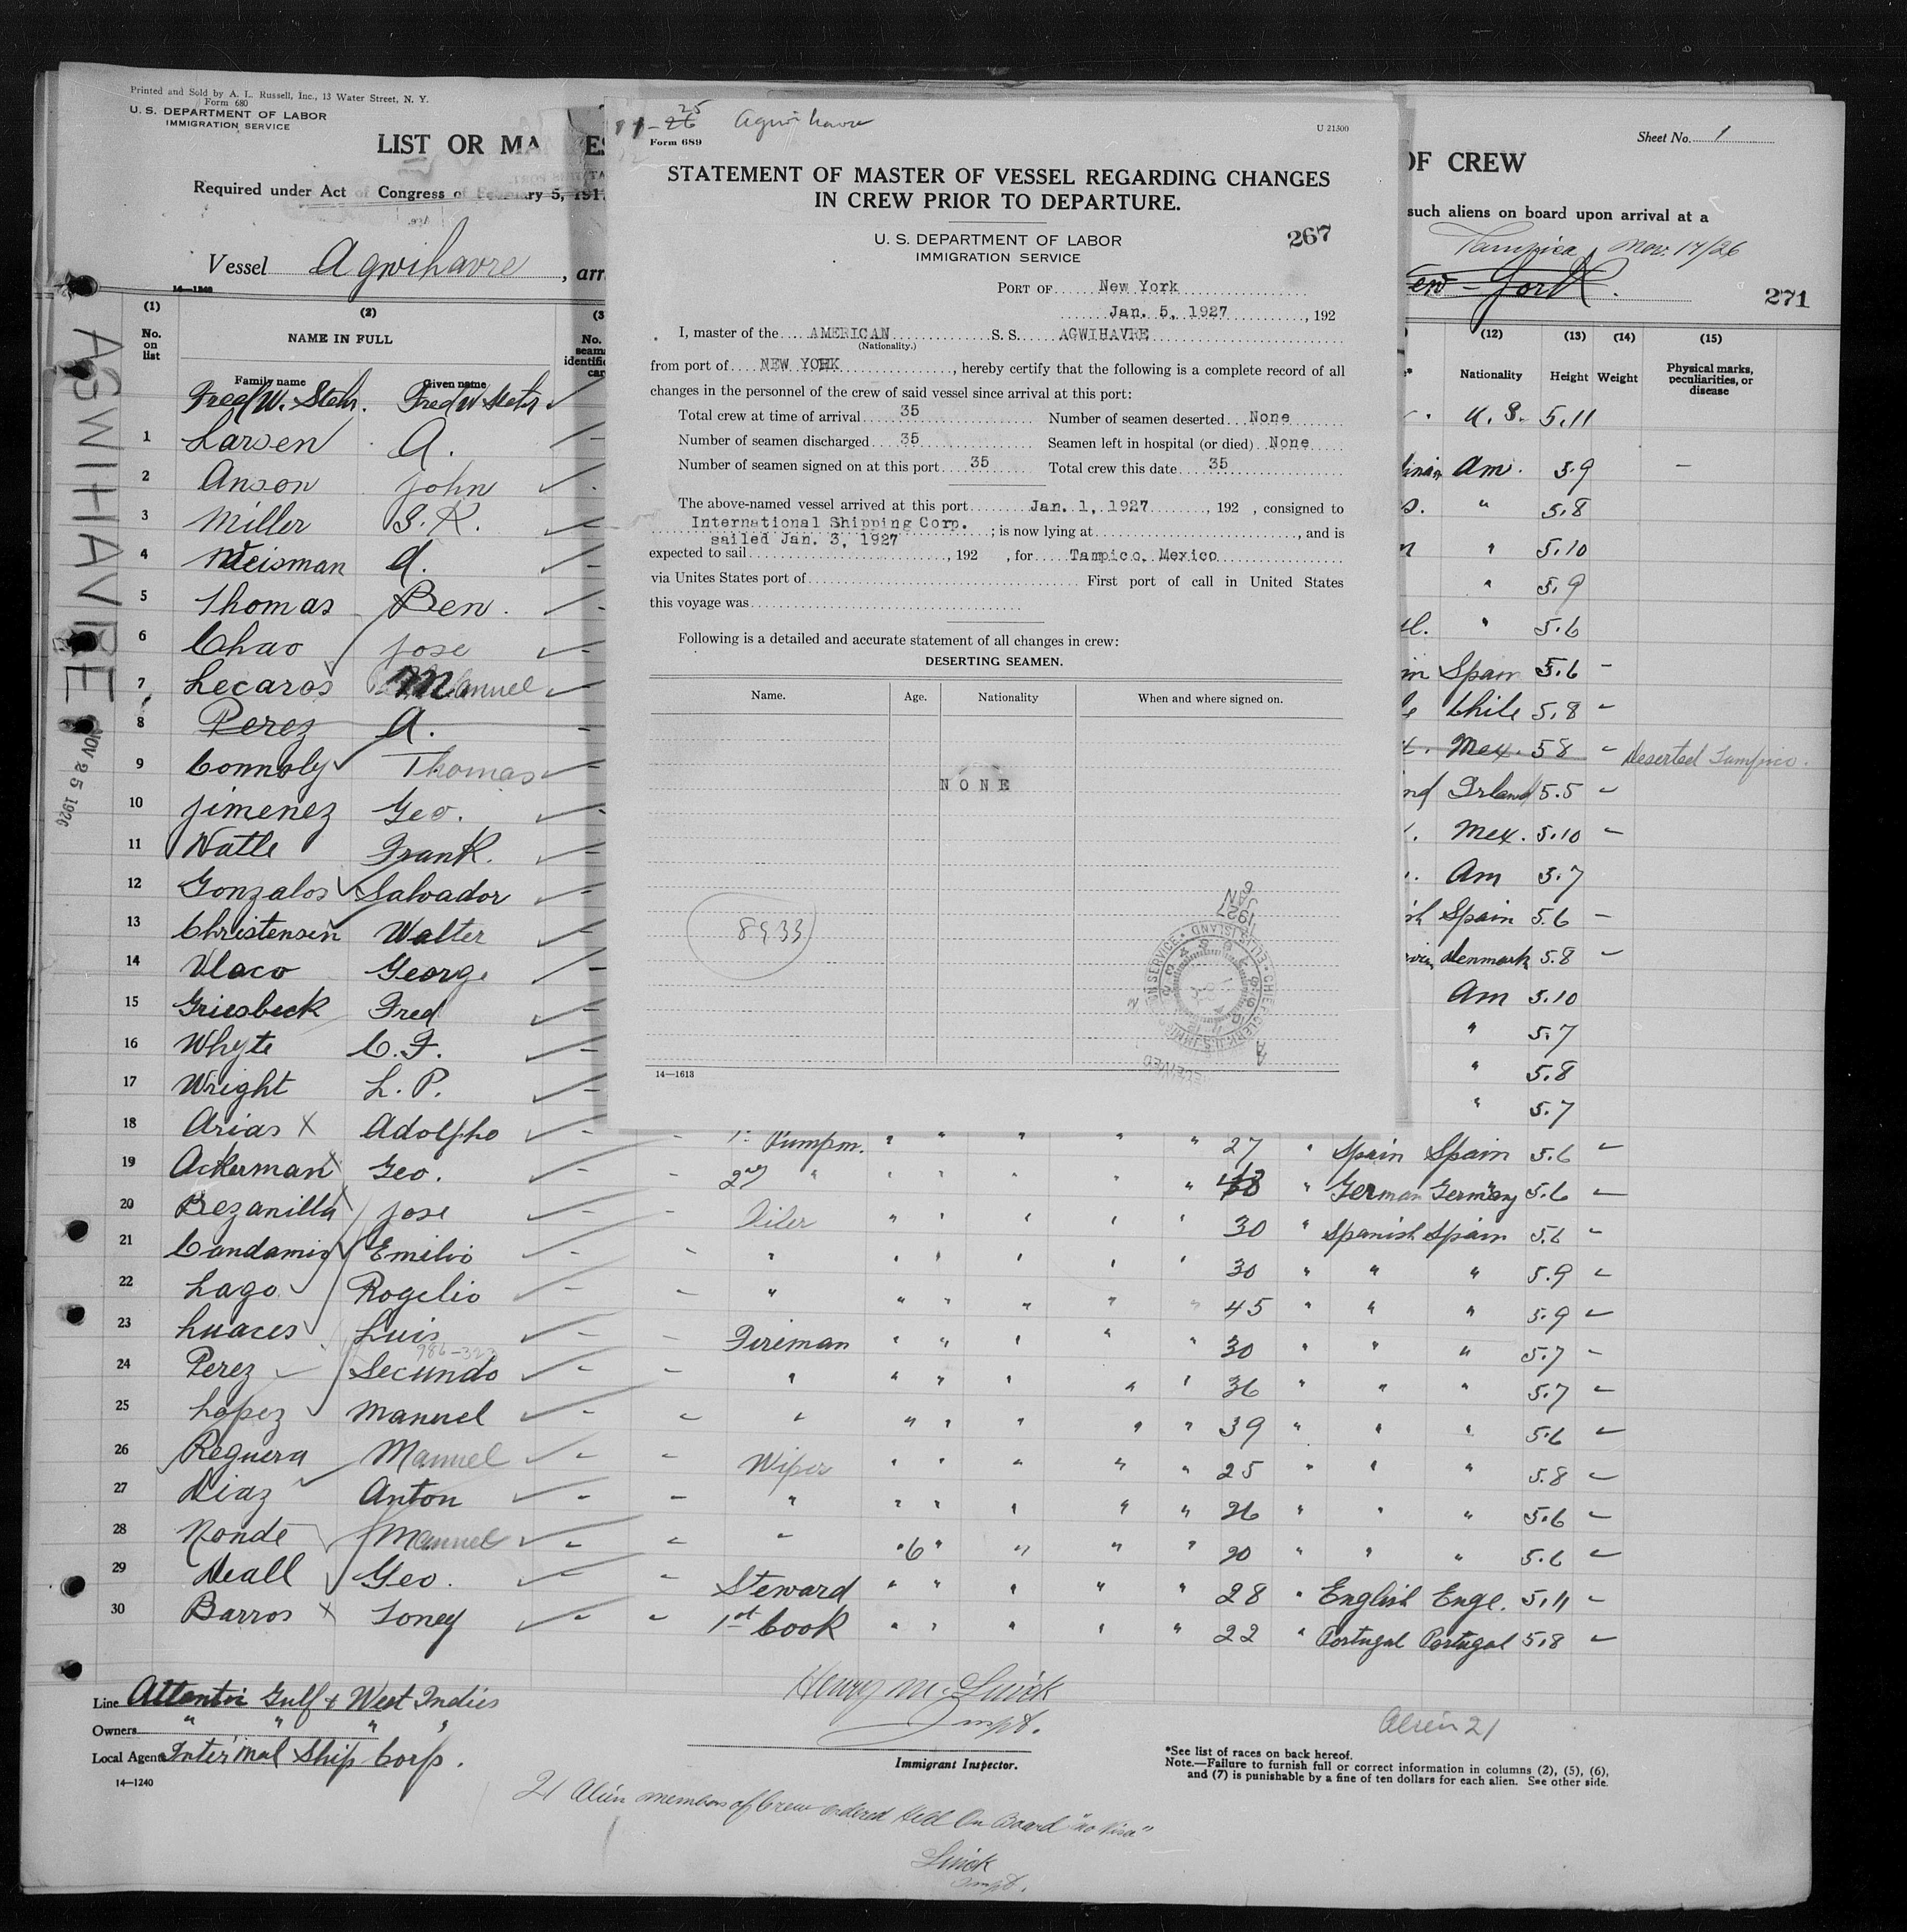 Printed and Sold by A. L. Russell, Inc., 13 Water Street, N. Y.
Form 680
U. S. DEPARTMENT OF LABOR
IMMIGRATION SERVICE
LIST OR MA
ES
OF CREW
Sheet No. 1
Required under Act of Congress of February 5, 1917
such aliens on board upon arrival at a
Vessel Agwihavre, arri
Tampico Nov. 17/26
ew-York.
271
14—1240
(1) (2) (3
No. on list
NAME IN FULL
Family name Given name
No.
seama
identific
car
(12) (13) (14) (15)
Nationality Height Weight Physical marks, peculiarities, or disease
Fred W. Stehr. Fred W Stehr U. S. 5.11
1 Larsen A. Am. 5.9 –
2 Anson John " 5.8
3 Miller S. K. " 5.10
4 Weisman A. " 5.9
5 Thomas Ben. " 5.6
6 Chao Jose Spain 5.6 –
7 Lecaros Manuel Chile 5.8 –
8 Perez A. Mex. 58 – Deserted Tampico.
9 Connoly Thomas Irland 5.5 –
10 Jimenez Geo. Mex. 5.10 –
11 Natle Frank. Am 5.7
12 Gonzalos Salvador Spain 5.6 –
13 Christensen Walter Denmark 5.8 –
14 Vlaco George Am 5.10
15 Griesbeck Fred " 5.7
16 Whyte C. F. " 5.8
17 Wright L. P. " 5.7
18 Arias X Adolpho Pumpm. " " " " " 27 " Spain Spain 5.6 –
19 Ackerman Geo. 2nd " " " " " " " German Germany 5.6 –
20 Bezanilla Jose Oiler " " " " " 30 " Spanish Spain 5.6 –
21 Candamio Emilio " " " " " " 30 " " " 5.9 –
22 Lago Rogelio " " " " " " 45 " " " 5.9 –
23 Luaces Luis Fireman " " " " " 30 " " " 5.7 –
24 Perez Secundo " " " " " " 36 " " " 5.7 –
25 Lopez Manuel " " " " " " 39 " " " 5.6 –
26 Reguera Manuel Wiper " " " " " 25 " " " 5.8 –
27 Diaz Anton " " " " " " 26 " " " 5.6 –
28 Nonde Manuel " 6 " " " " 20 " " " 5.6 –
29 Neall Geo. Steward " " " " " 28 " English Enge. 5.11 –
30 Barros X Toney 1st Cook " " " " " 22 " Portugal Portugal 5.8 –
Line Atlantic Gulf & West Indies
Owners " " " "
Local Agents Inter'mal Ship Corp.
14—1240
Henry M. Quick
Inspt.
Immigrant Inspector.
Alien 21
*See list of races on back hereof.
Note.—Failure to furnish full or correct information in columns (2), (5), (6),
and (7) is punishable by a fine of ten dollars for each alien. See other side.
21 Alien members of Crew ordered Held On Board "no visa"
Quick
Inspt.
AGWIHAVRE
NOV 25 1926
25
26 Agwihavre
Form 689
U 21500
STATEMENT OF MASTER OF VESSEL REGARDING CHANGES
IN CREW PRIOR TO DEPARTURE.
U. S. DEPARTMENT OF LABOR
IMMIGRATION SERVICE
267
PORT OF New York
Jan. 5, 1927, 192
I, master of the AMERICAN S. S. AGWIHAVRE
(Nationality.)
from port of NEW YORK, hereby certify that the following is a complete record of all
changes in the personnel of the crew of said vessel since arrival at this port:
Total crew at time of arrival 35 Number of seamen deserted None
Number of seamen discharged 35 Seamen left in hospital (or died) None
Number of seamen signed on at this port 35 Total crew this date 35
The above-named vessel arrived at this port Jan. 1, 1927, 192 , consigned to
International Shipping Corp. ; is now lying at , and is
sailed Jan. 3, 1927
expected to sail , 192 , for Tampico, Mexico
via Unites States port of First port of call in United States
this voyage was
Following is a detailed and accurate statement of all changes in crew:
DESERTING SEAMEN.
Name. Age. Nationality When and where signed on.
NONE
8933
1927 JAN 6
CHIEF CLERK U.S. IMMIGRATION SERVICE • ELLIS ISLAND
RECEIVED
14—1613